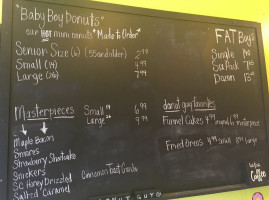 "Baby Boy Donuts"
our HOT mini donuts "Made to Order"
Senior Size (6) (55 and older) 2.99
Small (14) 4.99
Large (26) 7.99
FAT Boy's
Single
Six Pack 7
Dozen 13
Masterpieces Small 6.99
Large 9.99
Maple Bacon
Smores
Strawberry Shortcake
Snickers
SC Honey Drizzled
Salted Caramel
Cinnamon Toast Crunch
donut guy favorites
Funnel Cakes 4.99 masterpiece
Fried Oreos 4.99 small 8.99 large
Coffee